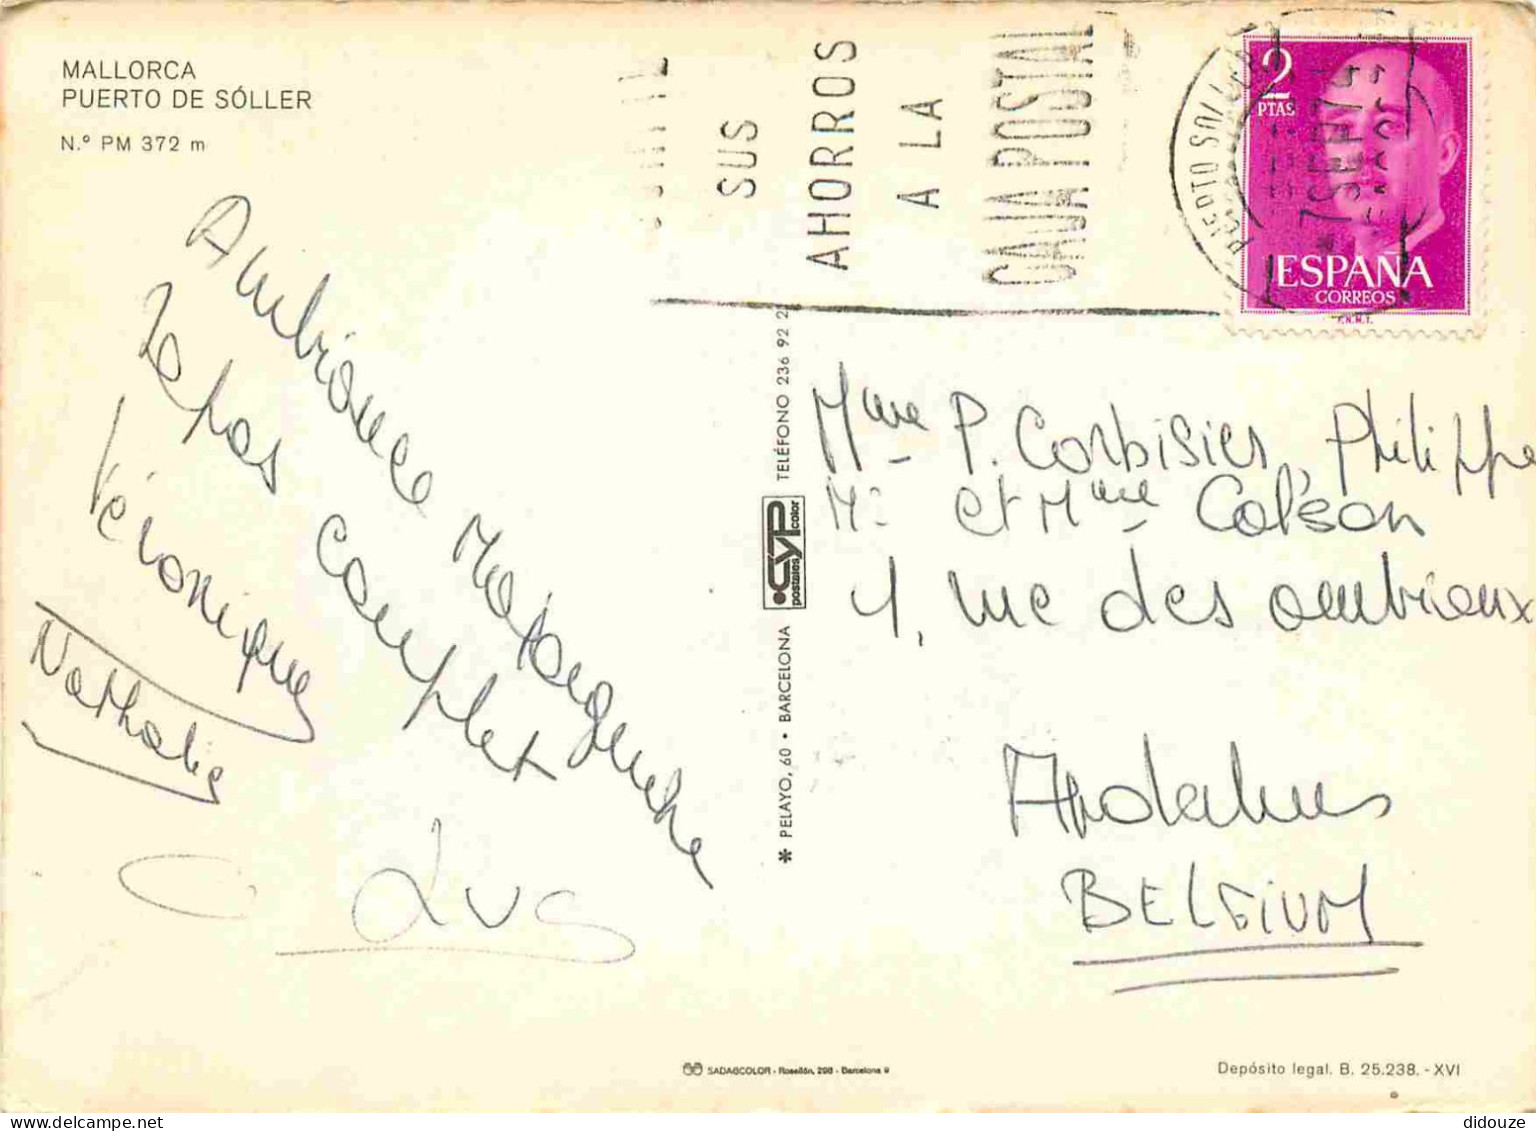 MALLORCA
PUERTO DE SÓLLER
N.º PM 372 m
SUS
AHORROS
A LA
CAJA POSTAL
2
PTAS
ESPAÑA
CORREOS
F.N.M.T.
Ambiance Majorquine
Repos complet
Véronique
Nathalie
Luc
TELÉFONO 236 92 2
CYP
color
postales
✻ PELAYO, 60 • BARCELONA
Mme P. Corbisier, Philippe
Mr et Mme Colson
1, rue des ombriaux
BELGIUM
SADAGCOLOR - Rosellón, 298 - Barcelona 9
Depósito legal. B. 25.238. - XVI
delcampe.net
didouze